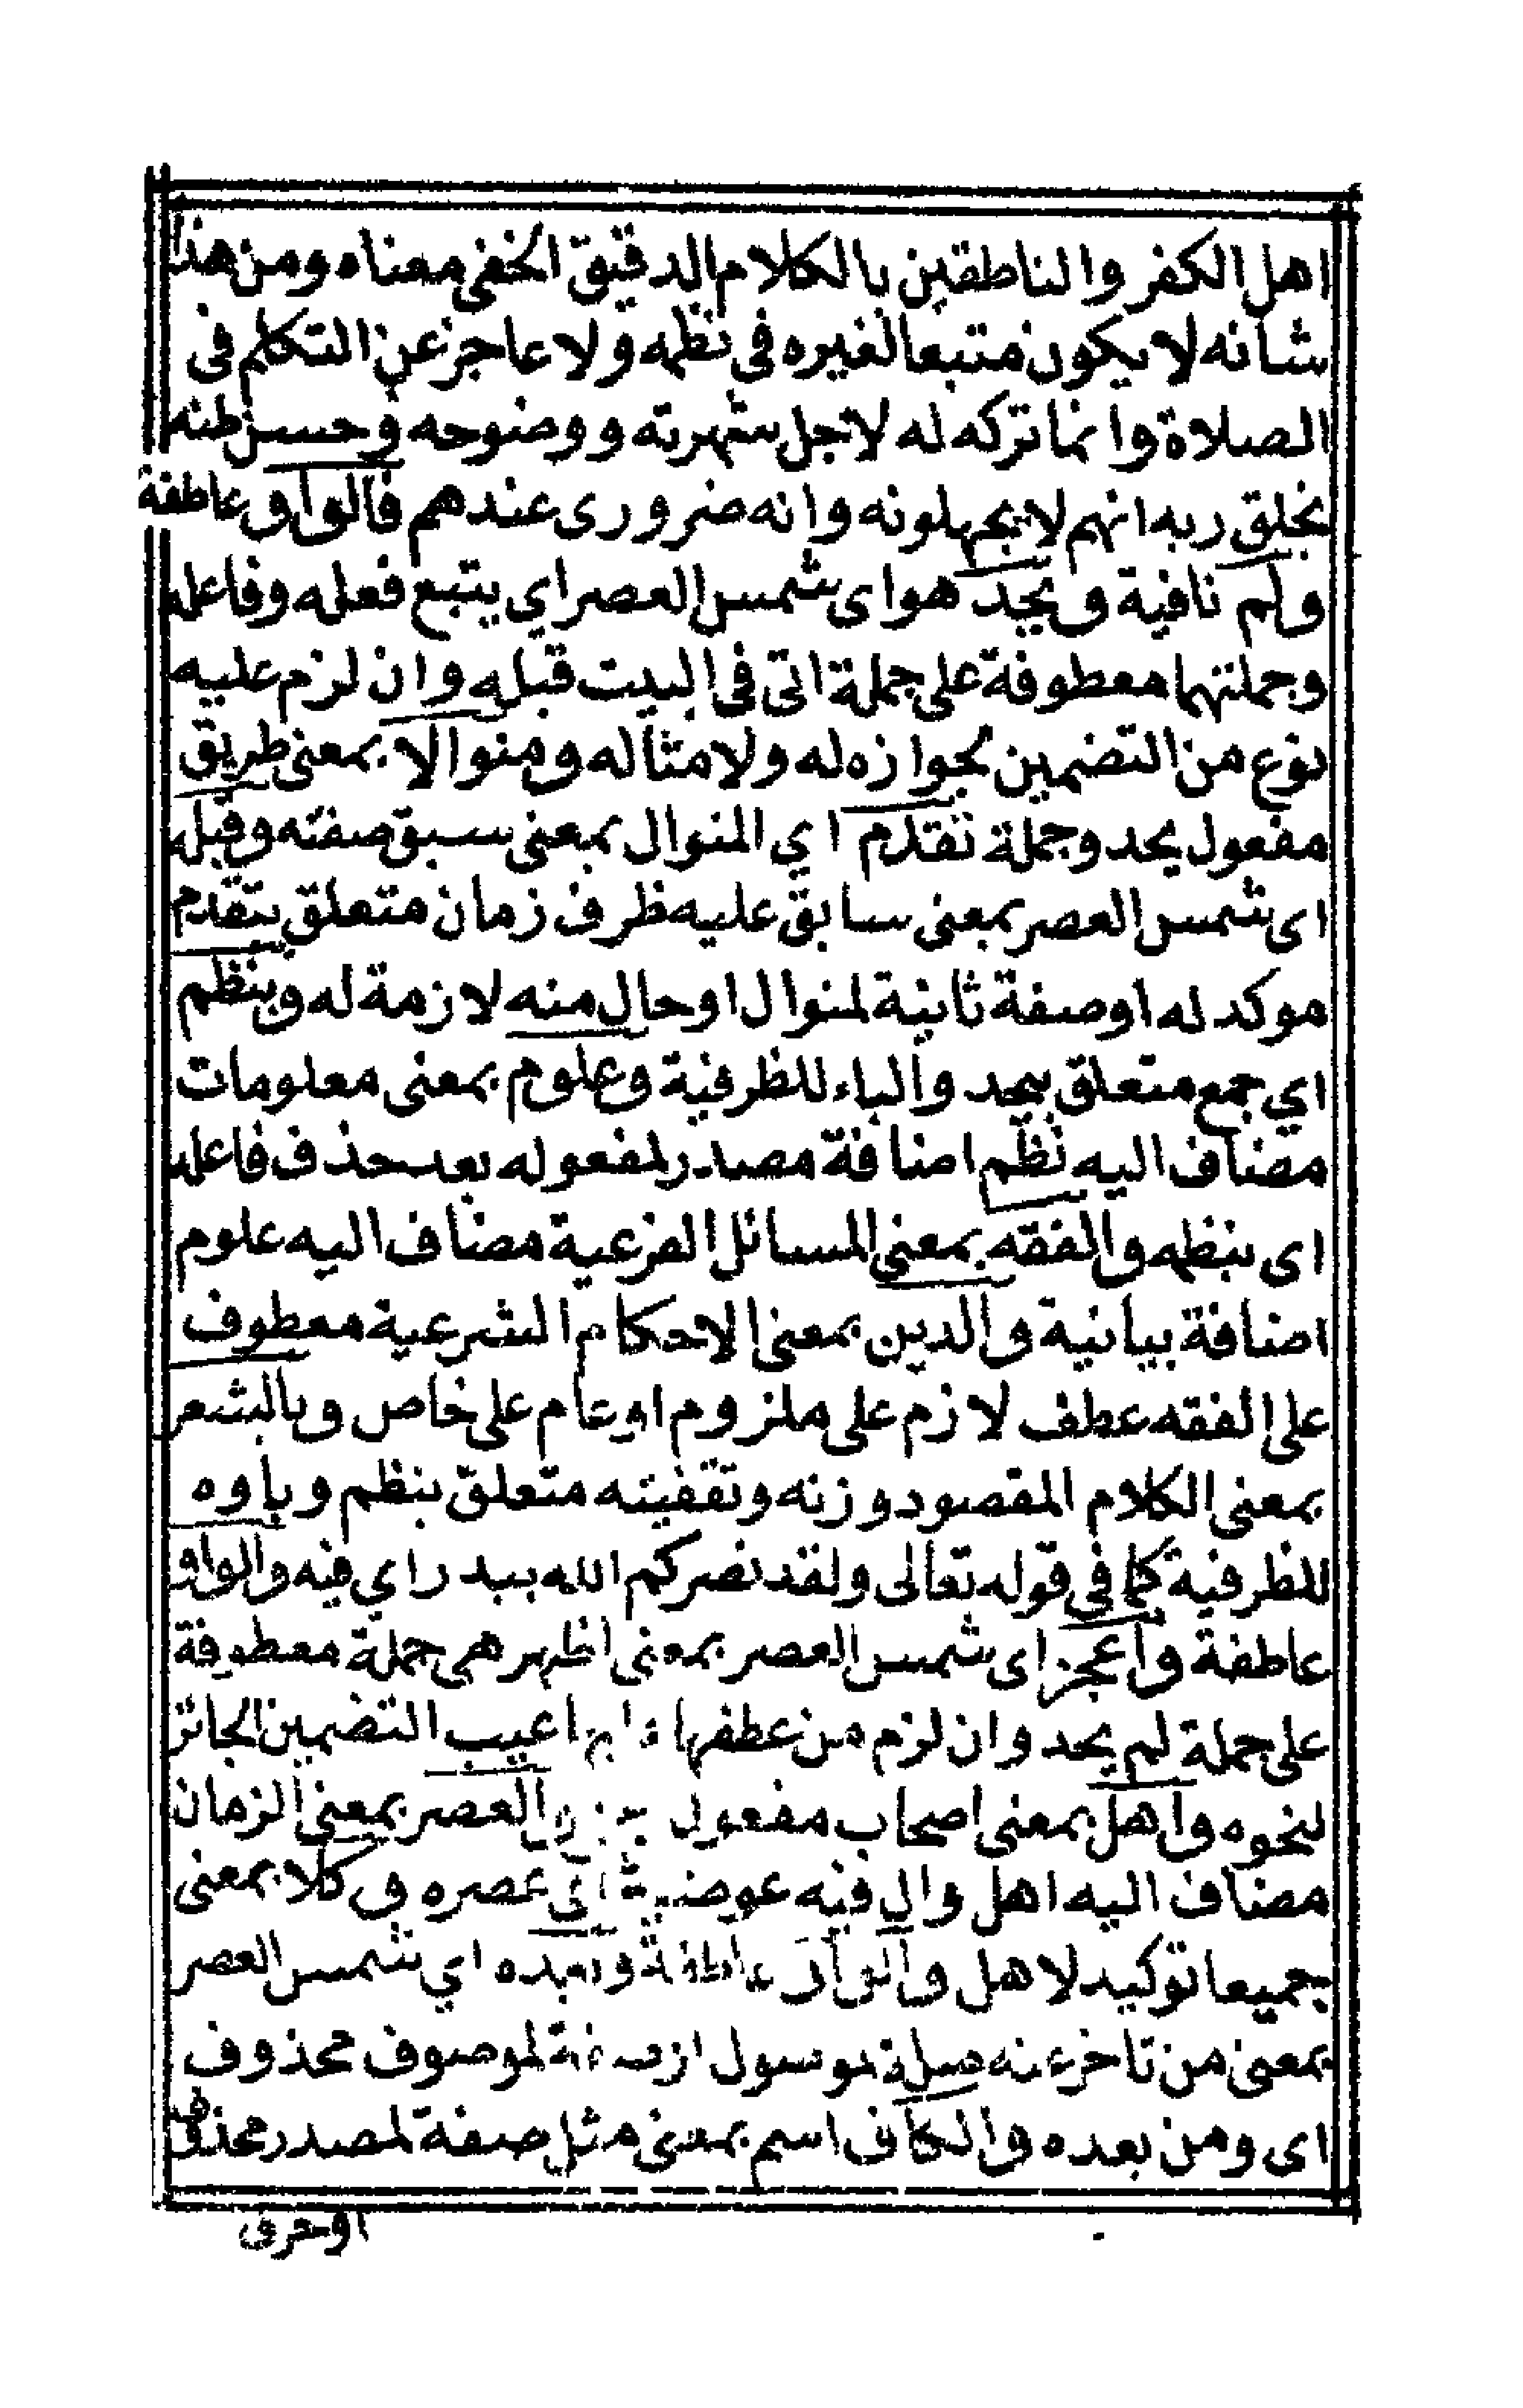 اهل الكفر والناطقين بالكلام الدقيق الخفى معناه ومن هذا
شانه لا يكون متبعا لغيره فى نظمه ولا عاجز عن التكلم فى
الصلاة وانما تركه له لاجل شهرته ووضوحه وحسن ظنه
بخلق ربه انهم لا يجهلونه وانه ضرورى عندهم فالواو عاطفة
ولم نافية ويحد هو اى شمس العصر اي يتبع فعله وفاعله
وجملتهما معطوفة على جملة اتى فى البيت قبله وان لزم عليه
نوع من التضمين لجوازه له ولامثاله ومنوالا بمعنى طريق
مفعول يحد وجملة تقدم اي المنوال بمعنى سبق صفته وقبله
اى شمس العصر بمعنى سابق عليه ظرف زمان متعلق بتقدم
موكد له او صفة ثانية لمنوال او حال منه لازمة له وبنظم
اي جمع متعلق بيحد والباء للظرفية وعلوم بمعنى معلومات
مضاف اليه نظم اضافة مصدر لمفعوله بعد حذف فاعله
اى بنظمه والفقه بمعنى المسائل الفرعية مضاف اليه علوم
اضافة بيانية والدين بمعنى الاحكام الشرعية معطوف
على الفقه عطف لازم على ملزوم او عام على خاص وبالشعر
بمعنى الكلام المقصود وزنه وتقفيته متعلق بنظم وباوه
للظرفية كما فى قوله تعالى ولقد نصركم الله ببدر اي فيه والواو
عاطفة واعجز اى شمس العصر بمعنى اظهر هى جملة معطوفة
على جملة لم يحد وان لزم من عطفها عيب التضمين الجائز
لنحوه واهل بمعنى اصحاب مفعول والعصر بمعنى الزمان
مضاف اليه اهل وال فيه عوضية اى عصره وكلا بمعنى
جميعا توكيد لاهل والواو عاطفة وبعده اي شمس العصر
بمعنى من تاخر عنه صلة موصول او صفة لموصوف محذوف
اى ومن بعده والكاف اسم بمعنى مثل صفة لمصدر محذوف
او حرف